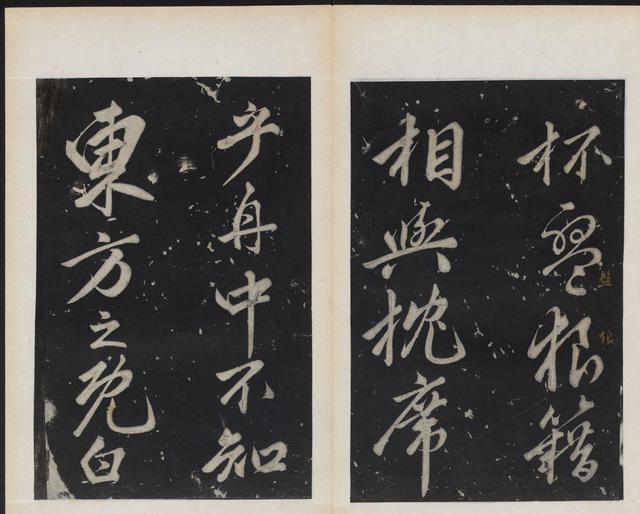 杯盤狼籍
相與枕席
乎舟中不知
東方之既白